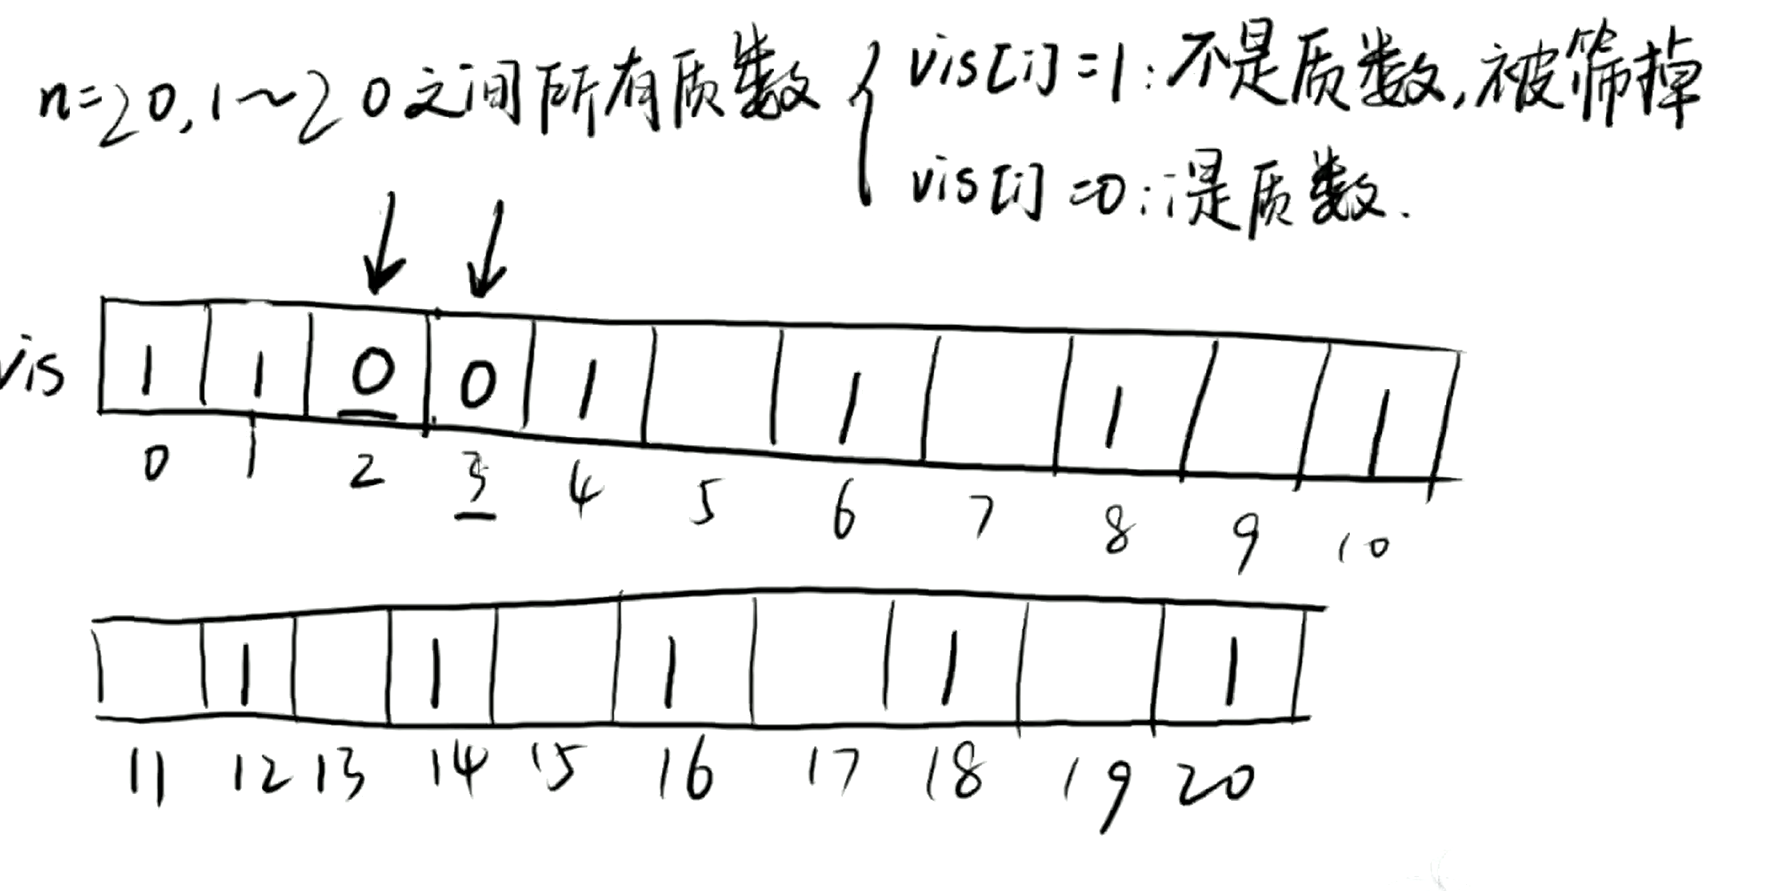 n=20,1~20之间所有质数
vis[i]=1:不是质数,被筛掉
vis[i]=0:i是质数.
vis 1 1 0 0 1 1 1 1
0 1 2 3 4 5 6 7 8 9 10
1 1 1 1 1
11 12 13 14 15 16 17 18 19 20